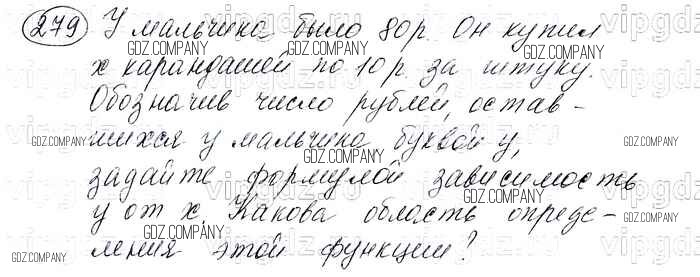 279 У мальчика было 80р. Он купил
х карандашей по 10 р. за штуку.
Обозначив число рублей, остав-
шихся у мальчика буквой у,
задайте формулой зависимость
у от х. Какова область опреде-
ления этой функции?